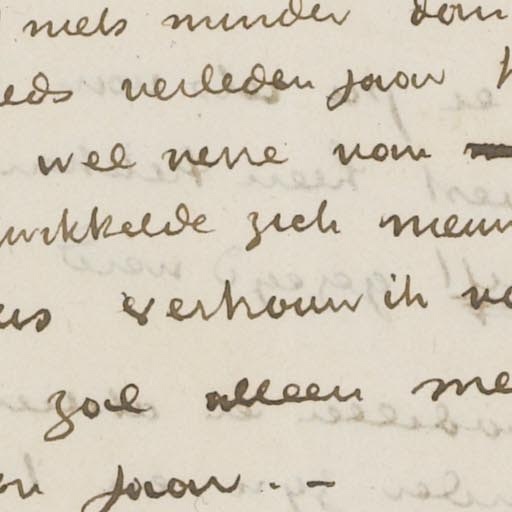 niets minder dan
eds verleden jaar
wel verre van
wikkelde zich nieuw
us vertrouw ik va
zal alleen me
en jaar. –